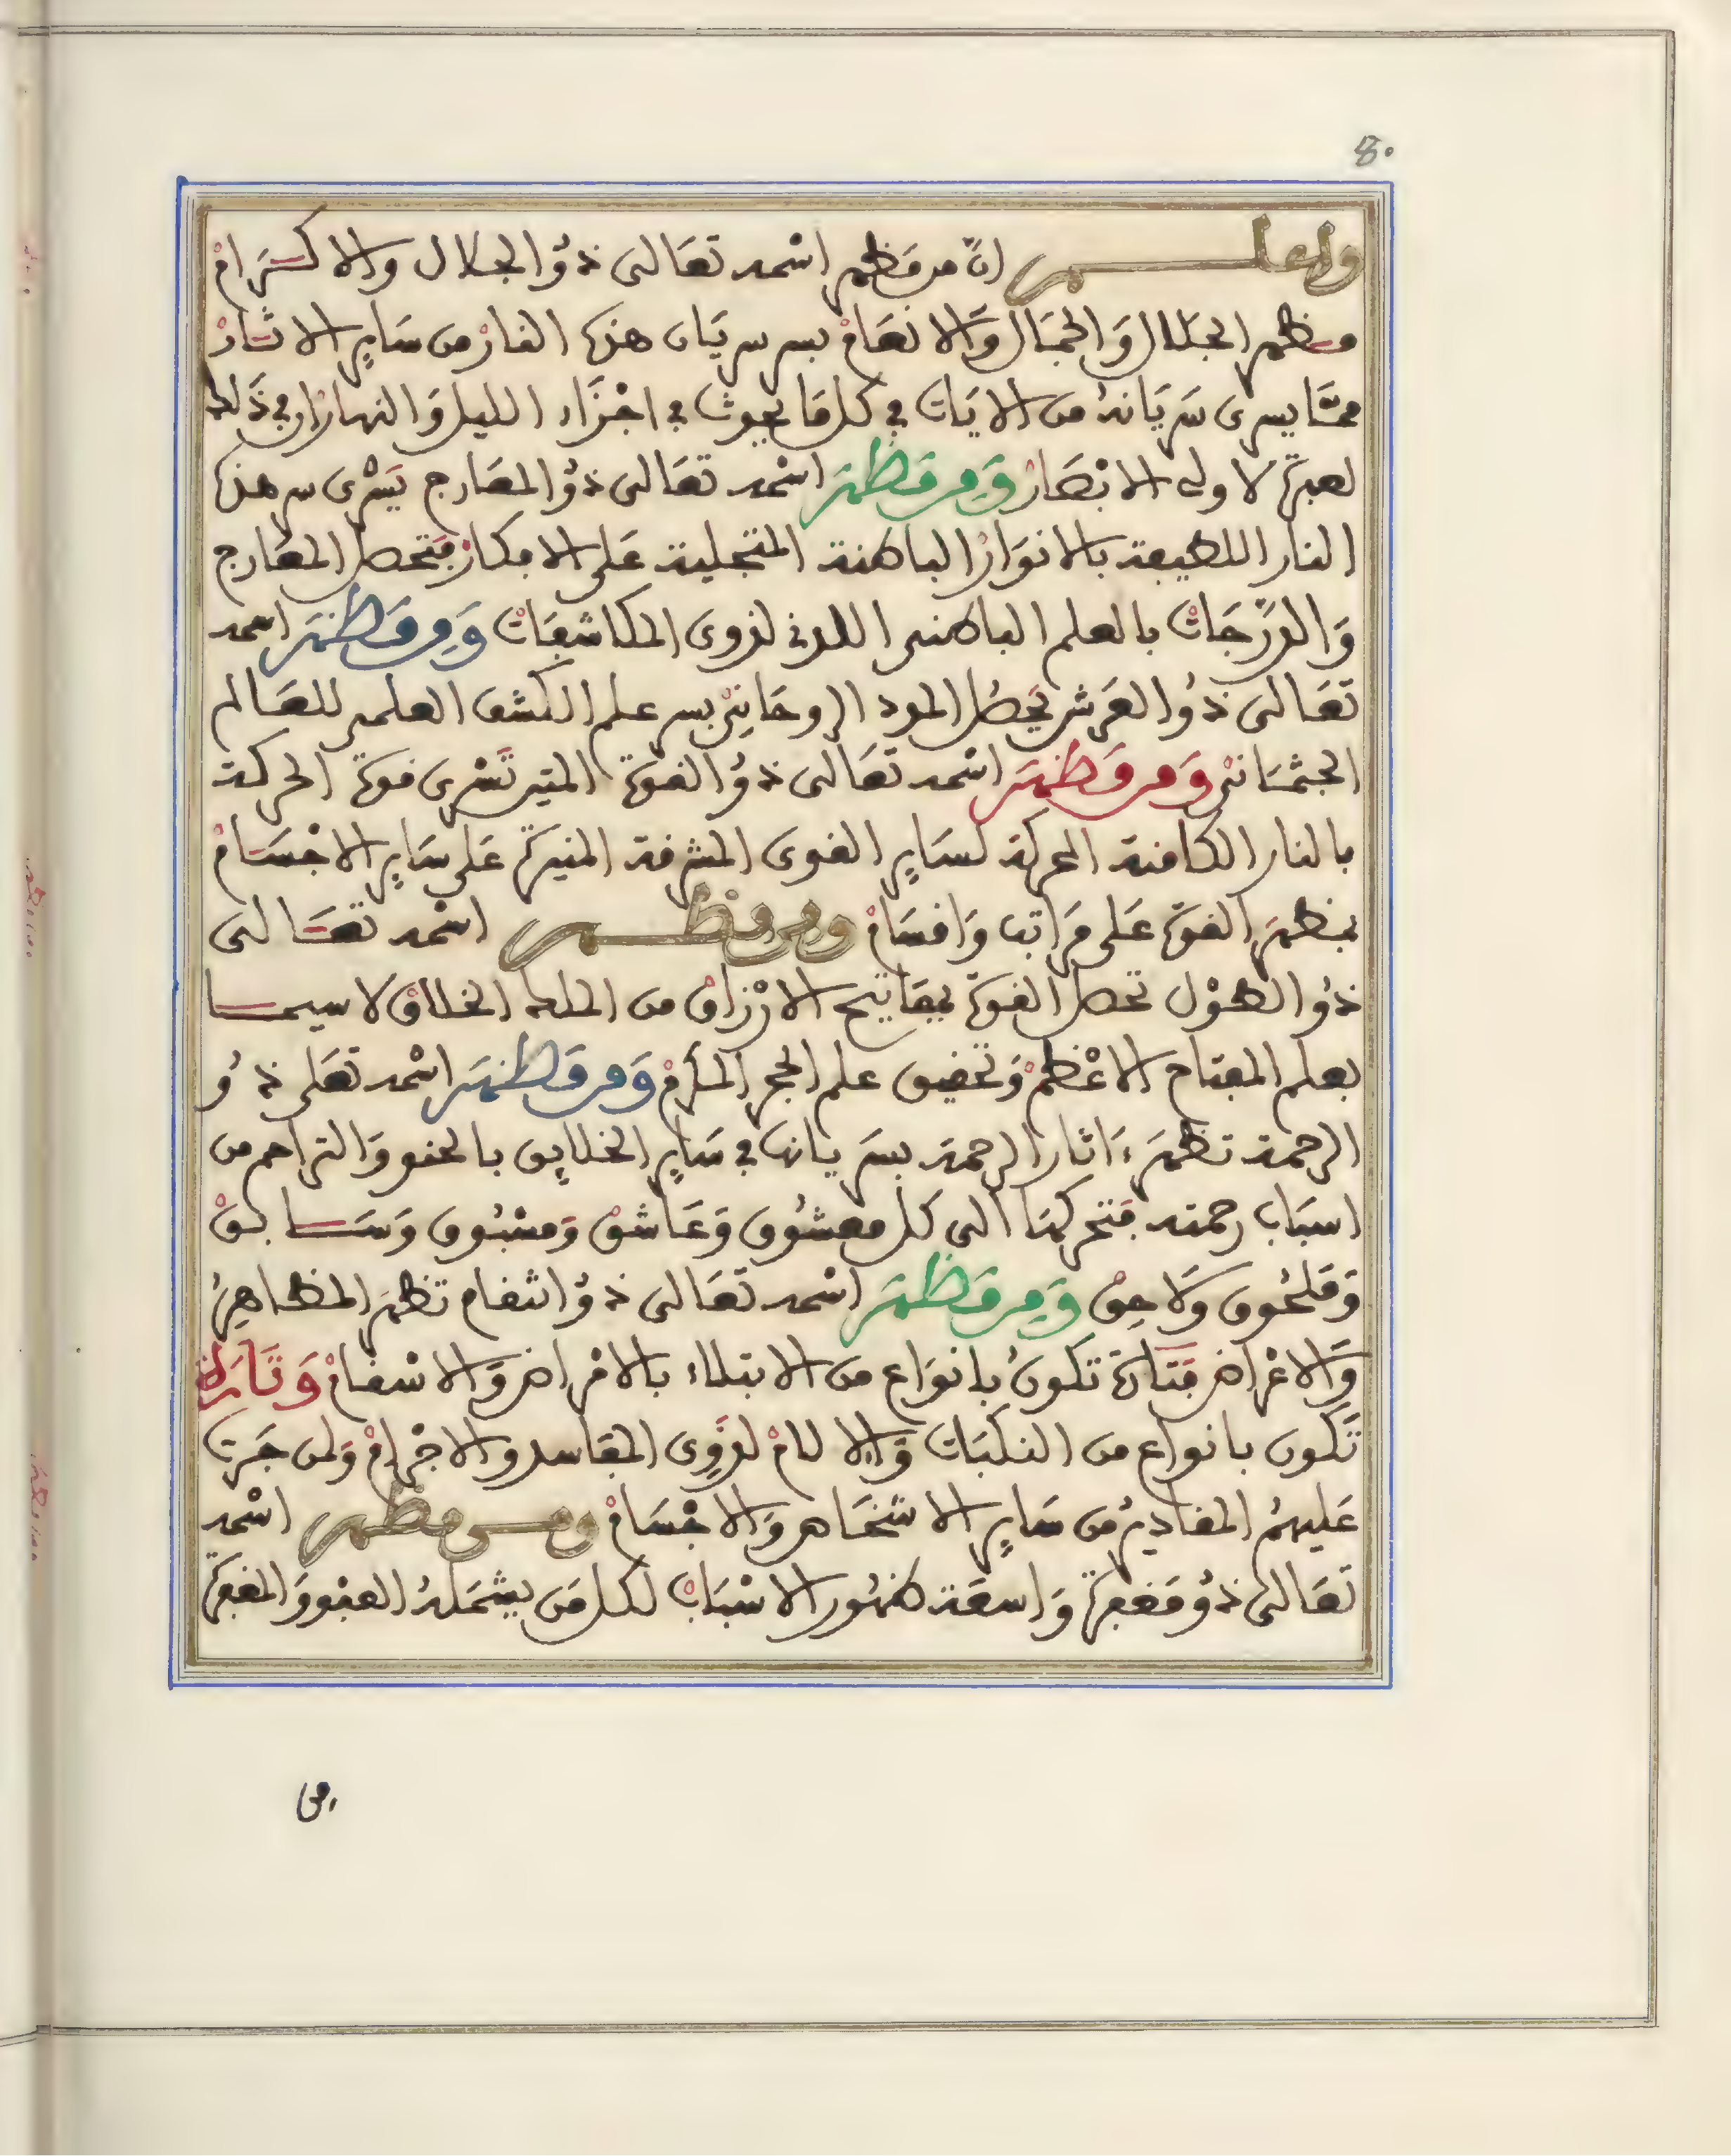 8.
واعلم انّ من مظهر اسمه تعالى ذو الجلال والاكرام
مظهر الجلال والجمال والانعام بسر سريان هذه النار من ساير الاثار
مما يسرى سريانه من الايات في كل ما يحوث في اجزاء الليل والنهار ان في ذلك
لعبرة لاولى الابصار ومن مظهر اسمه تعالى ذو المعارج يسرى سر هذه
النار اللطيفة بالانوار الباطنة المتجلية على الافكار فتحصل المعارج
والدرجات بالعلم الباطنى اللدنى لذوى المكاشفات ومن مظهر اسمه
تعالى ذو العرش تحصل المدد الروحاني بسر علم الكشف العلمى للعالم
الجثماني ومن مظهر اسمه تعالى ذو القوة المتين تسرى قوة الحركة
بالنار الكامنة المحركة لساير القوى المشرقة المنيرة على ساير الاجسام
بمظهر القوة على مراتب واقسام ومن مظهر اسمه تعالى
ذو الطول تحصل القوة بمفاتيح الارزاق من الملك الخلاق لا سيما
بعلم المفتاح الاعظم وتحقيق علم الحجر المكرم ومن مظهر اسمه تعلى ذو
الرحمة تظهر ءاثار الرحمة بسريانها في ساير الخلايق بالحنو والتراحم من
اسباب رحمته فتحركها الى كل معشوق وعاشق ومسبوق وسابق
وملحوق ولاحق ومن مظهر اسمه تعالى ذو انتقام تظهر المظاهر
والاغراض فتارة تكون بانواع من الابتلاء بالامراض والاسقام وتارة
تكون بانواع من النكبات والالام لذوى المفاسد والاجرام ولمن جرت
عليهم المقادير من ساير الاشخاص والاجسام ومن مظهر اسمه
تعالى ذو مغفرة واسعة ظهور الاسباب لكل من يشمله العفو والمغفرة
من